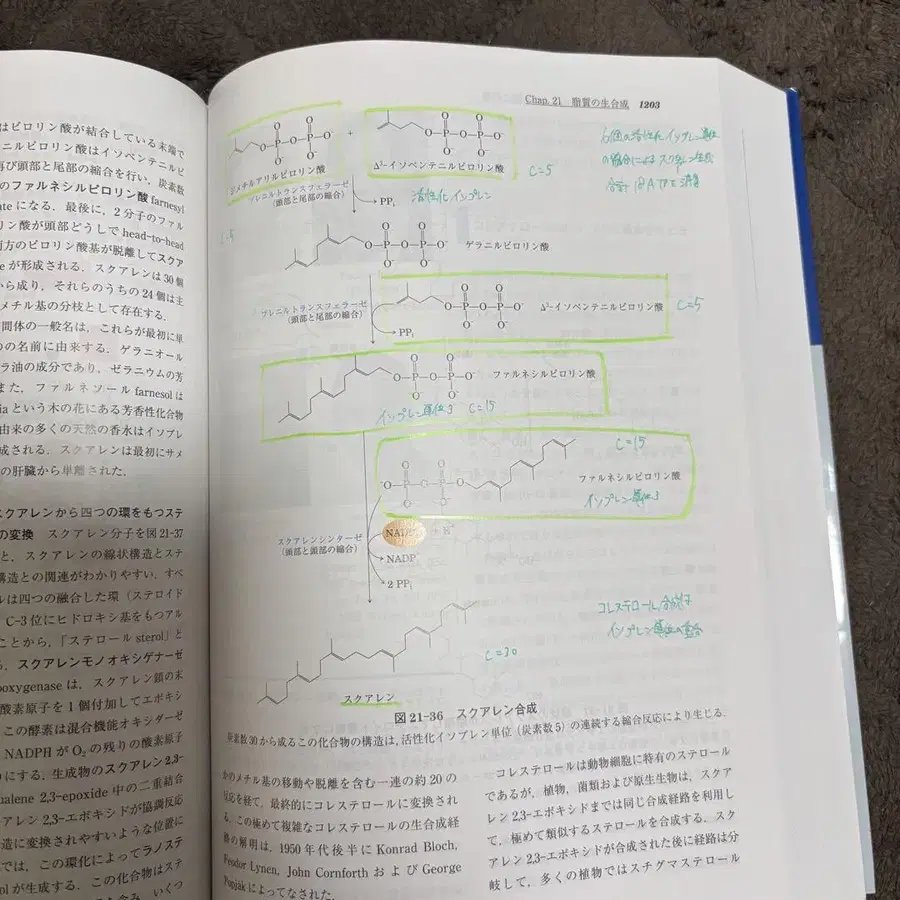 はピロリン酸が結合している末端で
ニルピロリン酸はイソペンテニルピ
再び頭部と尾部の縮合を行い，炭素数
のファルネシルピロリン酸 farnesyl
ate になる．最後に，2 分子のファル
リン酸が頭部どうしで head-to-head
両方のピロリン酸基が脱離してスクア
e が形成される．スクアレンは 30 個
から成り，それらのうちの 24 個は主
メチル基の分枝として存在する．
間体の一般名は，これらが最初に単
の名前に由来する．ゲラニオール
ラ油の成分であり，ゼラニウムの芳
また，ファルネソール farnesol は
ia という木の花にある芳香性化合物
由来の多くの天然の香水はイソプレ
成される．スクアレンは最初にサメ
の肝臓から単離された．
スクアレンから四つの環をもつステ
の変換 スクアレン分子を図 21-37
と，スクアレンの線状構造とステ
構造との関連がわかりやすい．すべ
ルは四つの融合した環（ステロイド
C-3 位にヒドロキシ基をもつアル
ことから，「ステロール sterol」と
る．スクアレンモノオキシゲナーゼ
ooxygenase は，スクアレン鎖の末
酸素原子を 1 個付加してエポキシ
この酵素は混合機能オキシダーゼ
NADPH が O₂ の残りの酸素原子
にする．生成物のスクアレン 2,3-
ualene 2,3-epoxide 中の二重結合
アレン 2,3-エポキシドが協調反応
造に変換されやすいような位置に
では，この環化によってラノステ
ol が生成する．この化合物はステ
Chap. 21 脂質の生合成 1203
ジメチルアリルピロリン酸
+
Δ³-イソペンテニルピロリン酸
C=5
合計 18 ATP を消費
プレニルトランスフェラーゼ
（頭部と尾部の縮合）
PPi
活性化イソプレン
ゲラニルピロリン酸
プレニルトランスフェラーゼ
（頭部と尾部の縮合）
PPi
Δ³-イソペンテニルピロリン酸
C=5
ファルネシルピロリン酸
イソプレン単位3 C=15
C=15
ファルネシルピロリン酸
イソプレン単位3
スクアレンシンターゼ
（頭部と頭部の縮合）
NADPH + H⁺
NADP⁺
2 PPi
コレステロール合成は
C=30
スクアレン
図 21-36 スクアレン合成
炭素数 30 から成るこの化合物の構造は，活性化イソプレン単位（炭素数 5）の連続する縮合反応により生じる．
かのメチル基の移動や脱離を含む一連の約 20 の
反応を経て，最終的にコレステロールに変換され
る．この極めて複雑なコレステロールの生合成経
路の解明は，1950 年代後半に Konrad Bloch,
Feodor Lynen, John Cornforth および George
Popják によってなされた．
コレステロールは動物細胞に特有のステロール
であるが，植物，菌類および原生生物は，スクア
レン 2,3-エポキシドまでは同じ合成経路を利用し
て，極めて類似するステロールを合成する．スク
アレン 2,3-エポキシドが合成された後に経路は分
岐して，多くの植物ではスチグマステロール